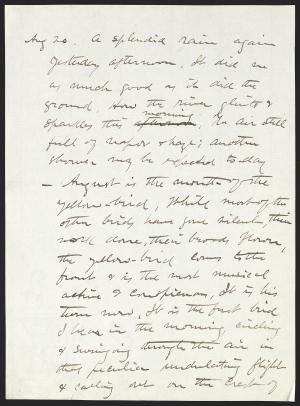 Aug 20. A splendid rain again
yesterday afternoon. It did me
as much good as it did the
ground. How the river glints &
sparkles this afternoon morning, the air still
full of vapor & haze; another
shower may be expected to-day
— August is the month of the
yellow-bird, While most of the
other birds have gone silent, their
work done, their broods flown,
the yellow-bird comes to the
front & is the most musical
active & conspicuous, It is his
turn now, It is the first bird
I hear in the morning circling
& swinging through the air in
that peculiar undulating flight
& calling out on the crest of